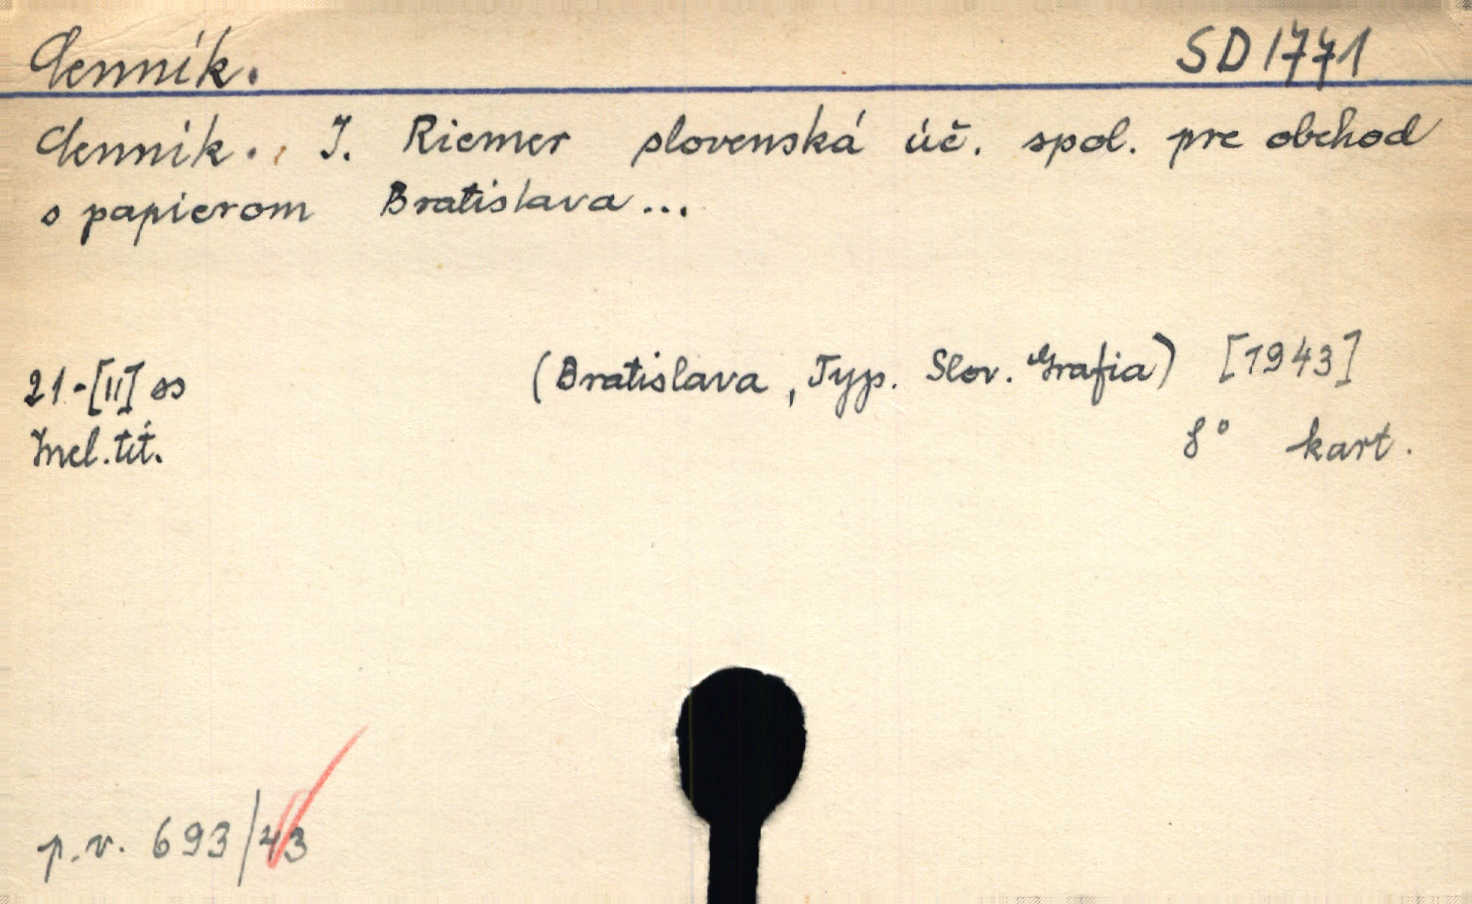 Cenník. SD 1771
Cenník., J. Riemer slovenská úč. spol. pre obchod
s papierom Bratislava...
21-[II] ss (Bratislava, Typ. Slov. Grafia) [1943]
Incl. tit. 8° kart.
p.v. 693/43